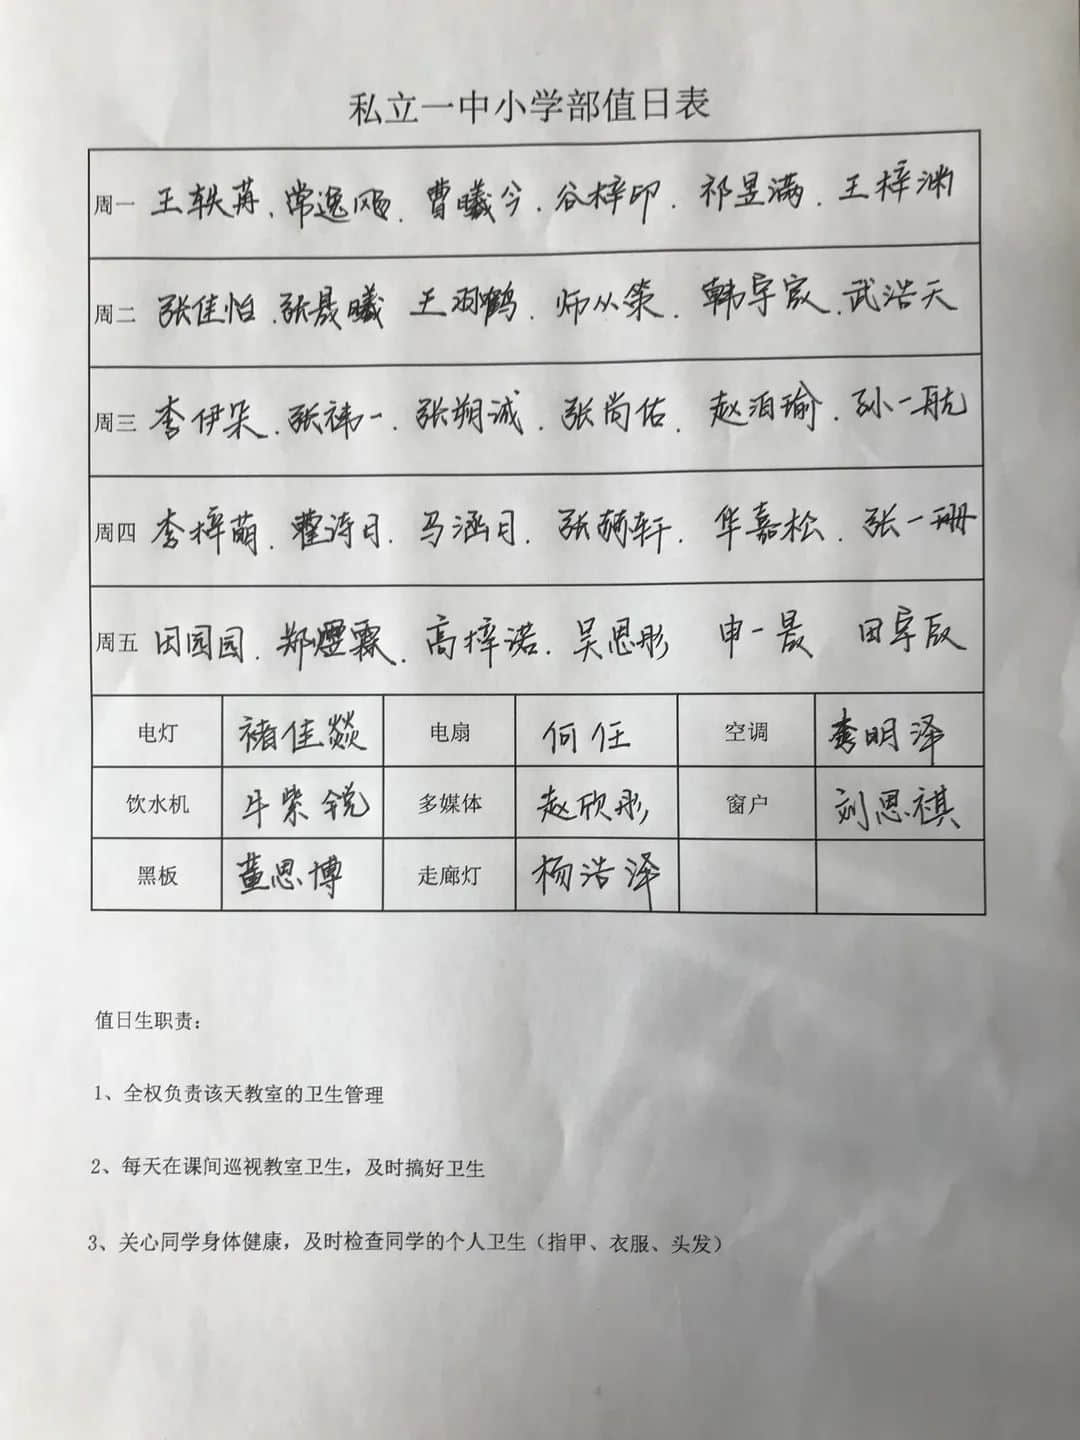 私立一中小学部值日表
周一 王轶苒、常逸飏、曹曦今、谷梓印、祁昱满、王梓渊
周二 张佳怡、张晟曦 王羽鹤、师从策、韩宇宸、武浩天
周三 李伊朵、张祎一、张朔诚、张尚佑、赵泊瑜、孙一航
周四 李梓萌、诗日、马涵日、张轩、华嘉松、张一珊
周五 田园园、郑煜霖、高梓诺、吴思彤 申一晟 田宇辰
电灯 褚佳燚 电扇 何任 空调 李明泽
饮水机 牛紫锐 多媒体 赵欣彤 窗户 刘思祺
黑板 董思博 走廊灯 杨浩泽
值日生职责：
1、全权负责该天教室的卫生管理
2、每天在课间巡视教室卫生，及时搞好卫生
3、关心同学身体健康，及时检查同学的个人卫生（指甲、衣服、头发）